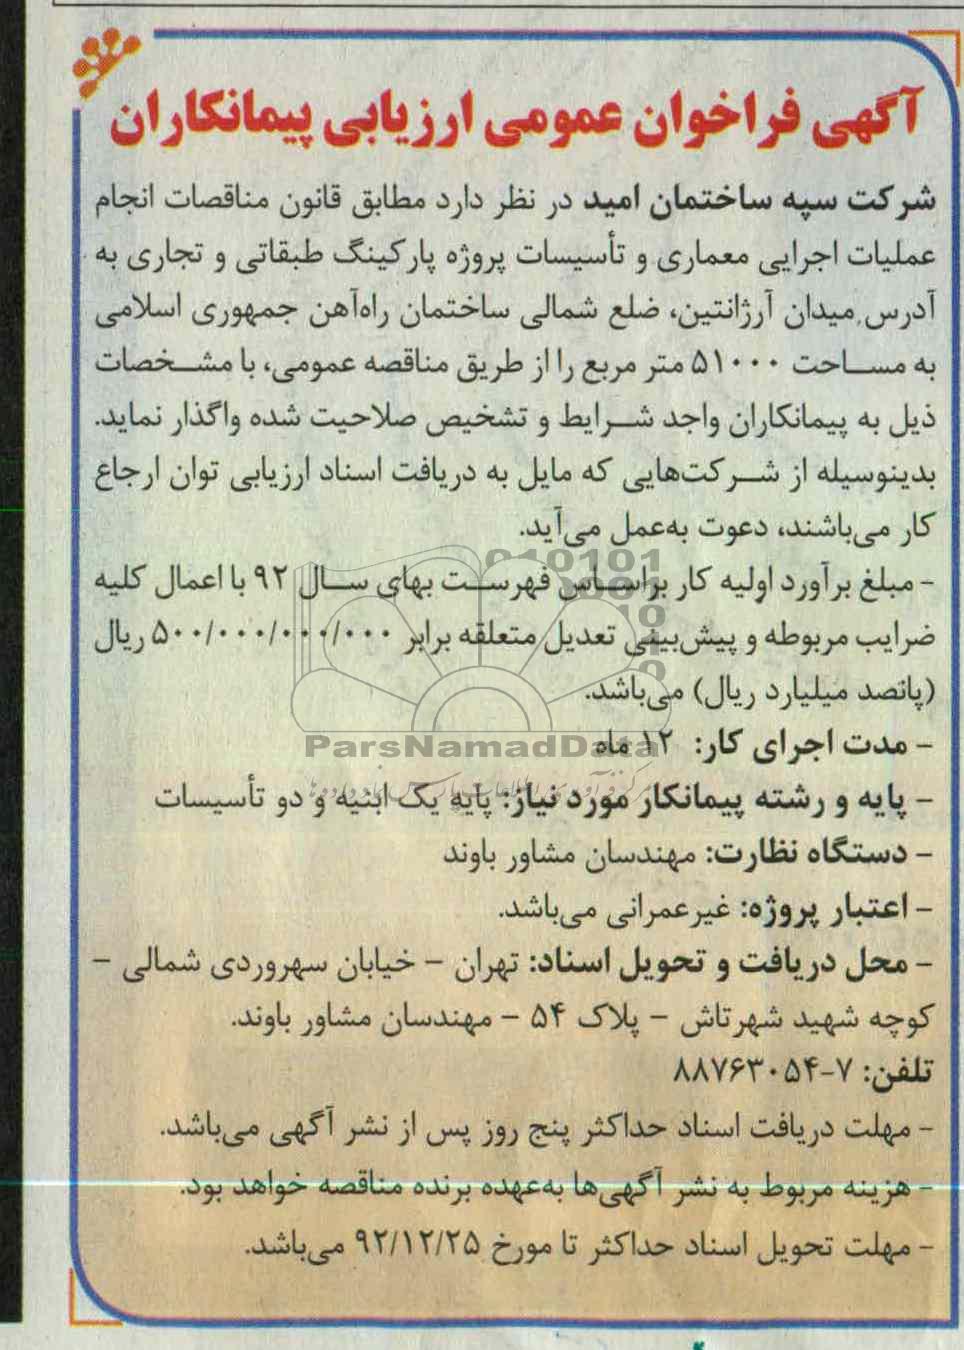 آگهی فراخوان عمومی ارزیابی پیمانکاران
شرکت سپه ساختمان امید در نظر دارد مطابق قانون مناقصات انجام
عملیات اجرایی معماری و تأسیسات پروژه پارکینگ طبقاتی و تجاری به
آدرس میدان آرژانتین، ضلع شمالی ساختمان راه‌آهن جمهوری اسلامی
به مساحت ۵۱۰۰۰ متر مربع را از طریق مناقصه عمومی، با مشخصات
ذیل به پیمانکاران واجد شرایط و تشخیص صلاحیت شده واگذار نماید.
بدینوسیله از شرکت‌هایی که مایل به دریافت اسناد ارزیابی توان ارجاع
کار می‌باشند، دعوت به‌عمل می‌آید.
- مبلغ برآورد اولیه کار براساس فهرست بهای سال ۹۲ با اعمال کلیه
ضرایب مربوطه و پیش‌بینی تعدیل متعلقه برابر ۵۰۰/۰۰۰/۰۰۰/۰۰۰ ریال
(پانصد میلیارد ریال) می‌باشد.
- مدت اجرای کار: ۱۲ ماه
ParsNamadData
- پایه و رشته پیمانکار مورد نیاز: پایه یک ابنیه و دو تأسیسات
- دستگاه نظارت: مهندسان مشاور باوند
- اعتبار پروژه: غیرعمرانی می‌باشد.
- محل دریافت و تحویل اسناد: تهران - خیابان سهروردی شمالی -
کوچه شهید شهرتاش - پلاک ۵۴ - مهندسان مشاور باوند.
تلفن: ۷-۸۸۷۶۳۰۵۴
- مهلت دریافت اسناد حداکثر پنج روز پس از نشر آگهی می‌باشد.
- هزینه مربوط به نشر آگهی‌ها به‌عهده برنده مناقصه خواهد بود.
- مهلت تحویل اسناد حداکثر تا مورخ ۹۲/۱۲/۲۵ می‌باشد.